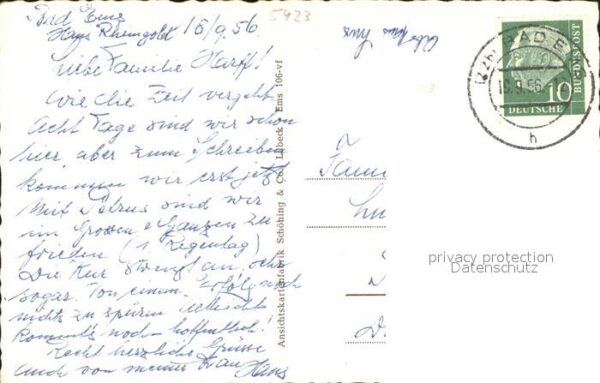 Bad Ems
Haus Rheingold 18/9.56.
Liebe Familie Harff!
Wie die Zeit vergeht
Acht Tage sind wir schon
hier aber zum Schreiben
kommen wir erst jetzt
Mit Petrus sind wir
im Grossen & Ganzen zu
frieden (1 Regentag)
Die Kur strengt an, sehr
sogar. Von einem Erfolg noch
nichts zu spüren vielleicht
kommt's noch hoffentlich!
Recht herzliche Grüsse
auch von meiner Frau Hans
5423
Ansichtskartenfabrik Schöning & Co., Lübeck
Ems 106-vf
BAD E
18.9.56
h
10
DEUTSCHE
BUNDESPOST
privacy protection
Datenschutz